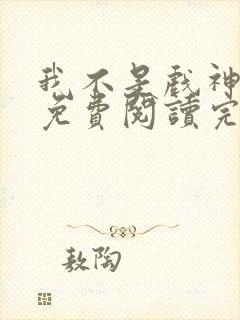 我不是戲神
免費閱讀完
敖陶